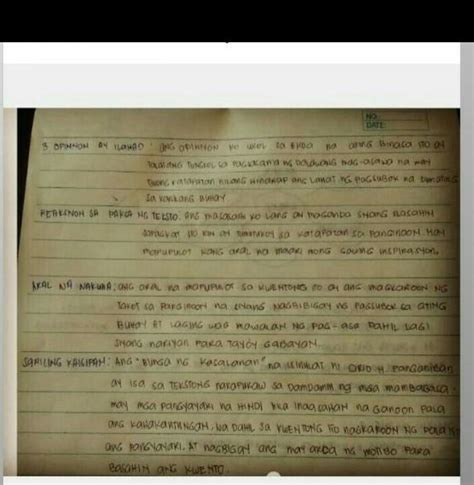 NO.
DATE:
3 OPINYON AY ILAHAD: ANG OPINYON KO UKOL SA AKDA NA AKING BINASA ITO AY
TUNGKOL SA PAGSASAMA NG DALAWANG MAG-ASAWA NA MAY
KATAPATAN NILANG HINARAP ANG LAHAT NG PAGSUBOK NA DUMATING
SA KANILANG BUHAY
REAKSNON SA PAKSA NG TEKSTO: ANG MASASABI KO LANG AY MAGANDA SIYANG BASAHIN
SAPAGKAT ITO RIN AY TUMUTUKOY SA KATAPATAN SA PANGINOON. MAY
MAPUPULOT KANG ARAL NA MAARI MONG GAWING INSPIRASYON.
ARAL NA NAKUHA: ANG ARAL NA MAPUPULOT SA KWENTONG ITO AY ANG MAGKAROON NG
TAKOT SA PANGINOON NA SIYANG NAGBIBIGAY NG PAGSUBOK SA ATING
BUHAY AT LAGING WAG MAWALAN NG PAG-ASA DAHIL LAGI
SIYANG NARIYAN PARA TAYO'Y GABAYAN.
SARILING KAISIPAN: ANG "BUNGA NG KASALANAN" NA ISINULAT NI CIRIO H. PANGANIBAN
AY ISA SA TEKSTONG NAPAPUKAW SA DAMDAMIN NG MGA MAMBABASA.
MAY MGA PANGYAYARI NA HINDI INAASAHAN NA GANOON PALA
ANG KAHAHANTUNGAN. DAHIL SA KWENTONG ITO NAGKAROON NG
ANG PANGYAYARI. AT NAGBIGAY ANG MAY AKDA NG MOTIBO PARA
BASAHIN ANG KWENTO.